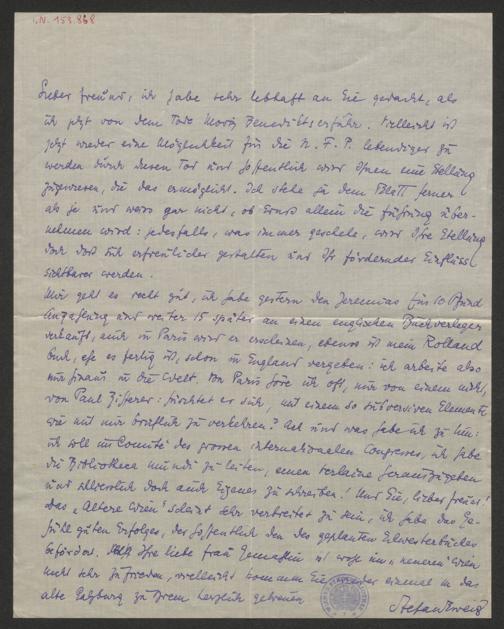 I.N. 158.868
Lieber Freund, ich habe sehr lebhaft an Sie gedacht, als
ich jetzt von dem Tode Moriz Benedikts erfuhr. Vielleicht ist
jetzt wieder eine Möglichkeit für die N. F. P. lebendiger zu
werden durch diesen Tod und hoffentlich wird Ihnen eine Stellung
zugewiesen, die das ermöglicht. Ich stehe ja dem Blatt ferner
als je und weiss gar nicht, ob Ernst allein die Führung über-
nehmen wird: jedesfalls, was immer geschehe, wird Ihre Stellung
doch dort sich erfreulicher gestalten und Ihr fördernder Einfluss
sichtbarer werden.
Mir geht es recht gut, ich habe gestern den Jeremias für 10 Pfund
Anzahlung und weiter 15 später an einen englischen Buchverleger
verkauft, auch in Paris wird er erscheinen, ebenso ist mein Rolland
Buch, ehe es fertig ist, schon in England vergeben: ich arbeite also
nur hinaus in die Welt. Von Paris höre ich oft, nur von einem nicht,
von Paul Zifferer: fürchtet er sich, mit einem so subversiven Elemente
wie mir brieflich zu verkehren? Ach und was habe ich zu tun:
ich soll im Comité des grossen internationalen Congresses, ich habe
die Bibliotheca mundi zu leiten, einen Verlaine herauszugeben
und schliesslich doch auch Eigenes zu schreiben! Und Sie, lieber Freund!
Das „Altere Wien" scheint sehr verbreitet zu sein, ich habe das Ge-
fühl guten Erfolges, der hoffentlich den des geplanten Schwesterbuches
befördert. Ihre liebe Frau Gemahlin ist wohl im „neueren" Wien
nicht sehr zufrieden, vielleicht kommen Sie wieder einmal in das
alte Salzburg zu Ihrem herzlich getreuen
Stefan Zweig